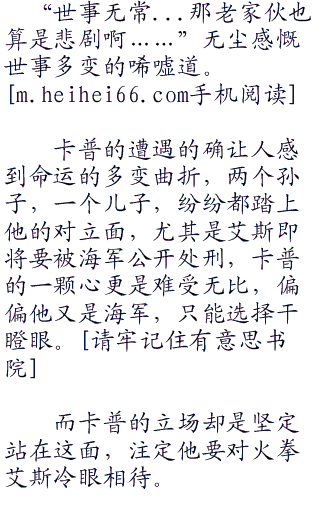 “世事无常...那老家伙也
算是悲剧啊……”无尘感慨
世事多变的唏嘘道。
[m.heihei66.com手机阅读]
卡普的遭遇的确让人感
到命运的多变曲折，两个孙
子，一个儿子，纷纷都踏上
他的对立面，尤其是艾斯即
将要被海军公开处刑，卡普
的一颗心更是难受无比，偏
偏他又是海军，只能选择干
瞪眼。[请牢记住有意思书
院]
而卡普的立场却是坚定
站在这面，注定他要对火拳
艾斯冷眼相待。